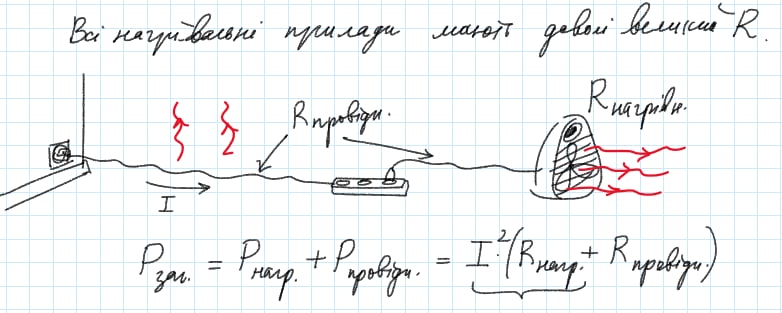 Всі нагрівальні прилади мають доволі великий R.
R провідн.
R нагрівн.
I
P заг. = P нагр. + P провідн. = I²·(R нагр. + R провідн.)